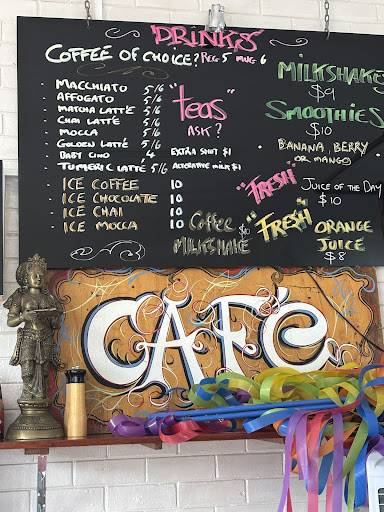 DRINKS
COFFEE OF CHOICE? REG 5 MUG 6
MACCHIATO 5/6
AFFOGATO 5/6
MATCHA LATTÉ 5/6
CHAI LATTÉ 5/6
MOCCA 5/6
GOLDEN LATTÉ 5/6
BABY CINO 4
TUMERIC LATTÉ 5/6
ICE COFFEE 10
ICE CHOCOLATE 10
ICE CHAI 10
ICE MOCCA 10
"teas"
ASK?
EXTRA SHOT $1
ALTERNATIVE MILK $1
Coffee $10
MILKSHAKE
MILKSHAKE
$9
SMOOTHIES
$10
BANANA, BERRY
OR MANGO
"FRESH" JUICE OF THE DAY
$10
"FRESH" ORANGE
JUICE
$8
CAFÉ